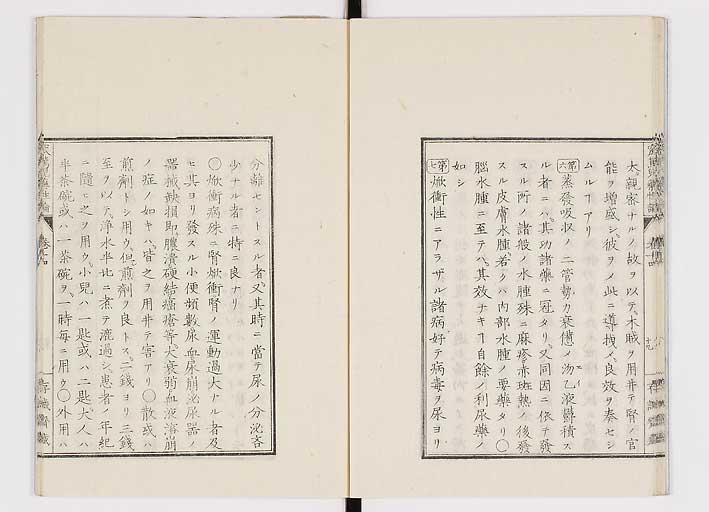 太親密ナルノ故ヲ以テ、木賊ヲ用井テ腎ノ官
能ヲ增盛シ、彼ヲノ此ニ導拽メ、良效ヲ奏セシ
ムルヿアリ
第六 蒸發吸収ノ二管勢力衰憊ノ汤乙液欝積ス
ル者ニハ、其功諸藥ニ冠タリ、又同因ニ依テ發
スル所ノ諸般ノ水腫殊ニ麻疹赤斑熱ノ後發
スル皮膚水腫、若クハ内部水腫ノ要藥タリ〇
腦水腫ニ至テハ、其效ナキヿ自餘ノ利尿藥ノ
如シ
第七 焮衝性ニアラザル諸病好テ病毒ヲ尿ヨリ
分離セントスル者、又其時ニ當テ尿ノ分泌吝
少ナル者ニ特ニ良ナリ
〇焮衝病殊ニ腎焮衝腎ノ運動過大ナル者及
ヒ其ヨリ發スル小便頻數尿血尿崩泌尿器ノ
器械缺損、即膿潰硬結癌瘡等、大衰弱血液溶崩
ノ症ノ如キハ、皆之ヲ用井テ害アリ〇散或ハ
煎劑トシ用ウ、但煎劑ヲ良トス、二錢ヨリ三錢
至ヲ以テ、淨水半比ニ煮テ漉過シ患者ノ年紀
ニ隨ヒ之ヲ用ウ、小兒ハ一匙或ハ二匙、大人ハ
半茶碗或ハ一茶碗ヲ、一時每ニ用ウ〇外用ハ